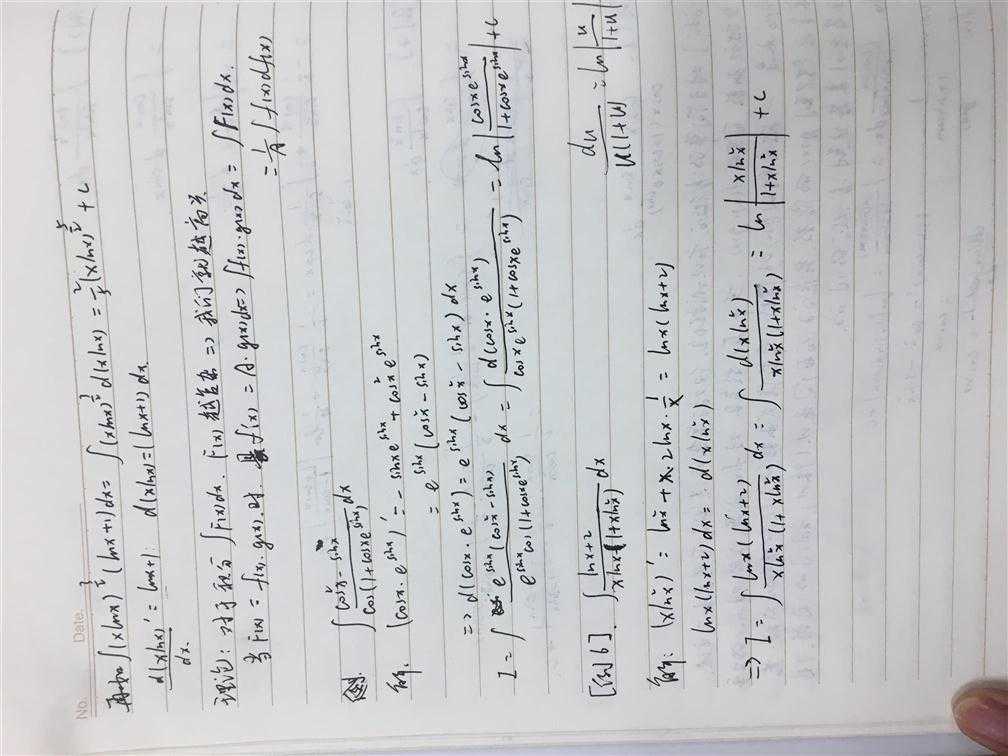 No.
Date.
再如 ∫(xlnx)^{3/2}(lnx+1)dx = ∫(xlnx)^{3/2}d(xlnx) = 2/5(xlnx)^{5/2} + C
d(xlnx)/dx' = lnx+1. d(xlnx) = (lnx+1)dx.
理论: 对于积分 ∫F(x)dx. F(x)越复杂 => 我们就越高兴
当 F(x) = f(x)·g(x) 时 f'(x) = A·g(x)dx => ∫f(x)·g(x)dx = ∫F(x)dx.
= 1/A ∫f(x)df(x)
例. ∫ (cos²x - sinx)/(cos(1+cosxe^{sinx})) dx
解. (cosx·e^{sinx})' = -sinxe^{sinx} + cos²xe^{sinx}
= e^{sinx}(cos²x - sinx)
=> d(cosx·e^{sinx}) = e^{sinx}(cos²x - sinx)dx
I = ∫ e^{sinx}(cos²x - sinx)/(e^{sinx}cos(1+cosxe^{sinx})) dx = ∫ d(cosx·e^{sinx})/(cosxe^{sinx}(1+cosxe^{sinx})) = ln|cosxe^{sinx}/(1+cosxe^{sinx})| + C
[例6]. ∫ (lnx+2)/(xlnx(1+xln²x)) dx
du/(u(1+u)) = ln|u/(1+u)|
解: (xln²x)' = ln²x + x·2lnx·1/x = lnx(lnx+2)
lnx(lnx+2)dx = d(xln²x)
=> I = ∫ lnx(lnx+2)/(xln²x(1+xln²x)) dx = ∫ d(xln²x)/(xln²x(1+xln²x)) = ln|xln²x/(1+xln²x)| + C